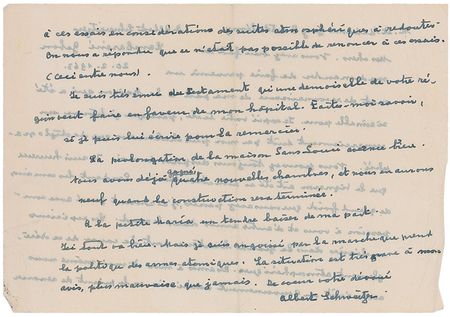 à ces essais en considérations des suites atmosphériques à redouter.
On nous a répondu que ce n'était pas possible de renoncer à ces essais.
(Ceci entre nous).
Je suis très émue du testament qui une demoiselle de votre ré-
gion veut faire en faveur de mon hôpital. Faites-moi savoir,
si je puis lui écrire pour la remercier.
La prolongation de la maison Sans Souci avance bien.
Nous avons déjà quatre nouvelles chambres, et nous en aurons
neuf quand la construction sera terminée.
A la petite Maria un tendre baiser de ma part.
Ici tout va bien. Mais je suis angoissé par la marche que prend
la politique des armes atomiques. La situation est très grave à mon
avis, plus mauvaise que jamais. De coeur votre dévoué
Albert Schweitzer